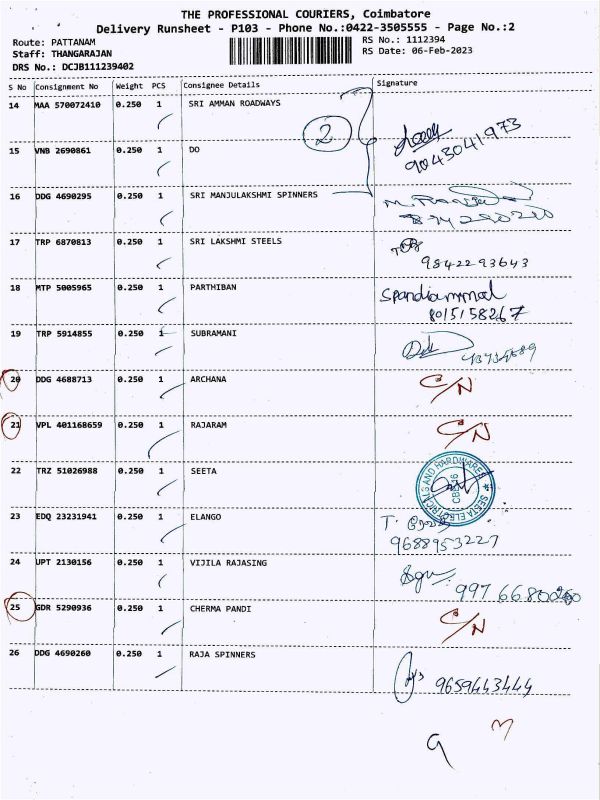 THE PROFESSIONAL COURIERS, Coimbatore
Delivery Runsheet - P103 - Phone No.:0422-3505555 - Page No.:2
Route: PATTANAM
RS No.: 1112394
Staff: THANGARAJAN
RS Date: 06-Feb-2023
DRS No.: DCJB111239402
S No Consignment No Weight PCS Consignee Details Signature
14 MAA 570072410 0.250 1 SRI AMMAN ROADWAYS
2
15 VNB 2690861 0.250 1 DO 9043041973
16 DDG 4690295 0.250 1 SRI MANJULAKSHMI SPINNERS
17 TRP 6870813 0.250 1 SRI LAKSHMI STEELS
9842293643
18 MTP 5005965 0.250 1 PARTHIBAN Spandiammal
8015158267
19 TRP 5914855 0.250 1 SUBRAMANI
20 DDG 4688713 0.250 1 ARCHANA C/N
21 VPL 401168659 0.250 1 RAJARAM C/N
22 TRZ 51026988 0.250 1 SEETA
SEETA ELECTRICALS AND HARDWARES
23 EDQ 23231941 0.250 1 ELANGO
9688953227
24 UPT 2130156 0.250 1 VIJILA RAJASING
25 GDR 5290936 0.250 1 CHERMA PANDI C/N
26 DDG 4690260 0.250 1 RAJA SPINNERS 9659443444
9 m